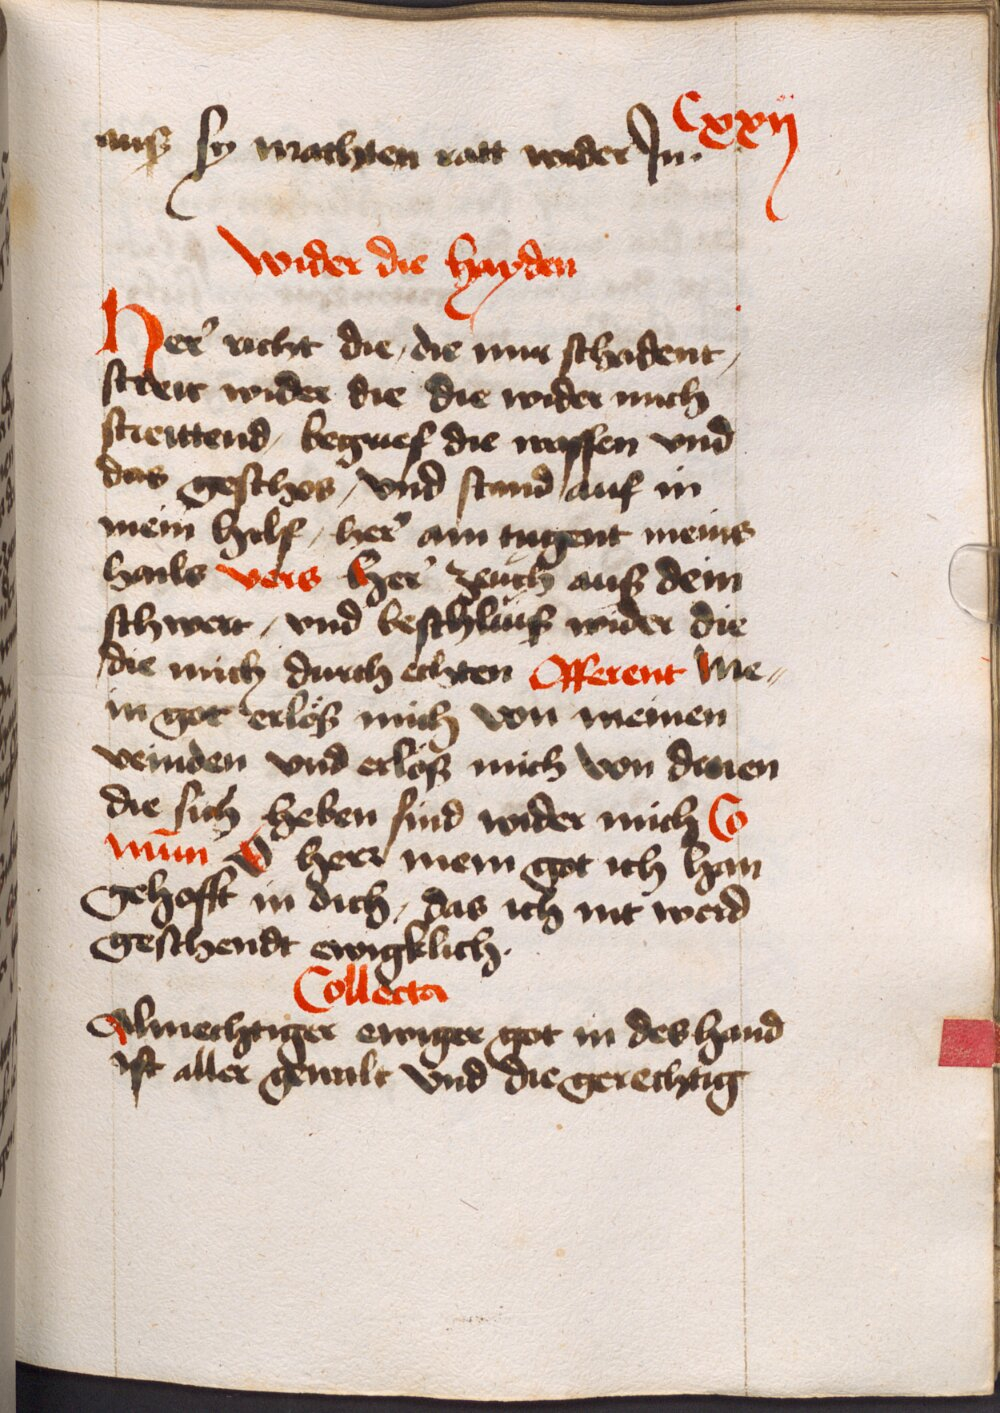 Cxxij
auß sy machten ratt wider In.
Wider die hayden
Her richt die, die mir schadent,
streit wider die die wider mich
streittend, begreif die waffen vnd
das geschos, vnd stand auf in
mein hilf, her ain tugent meins
hails vers her zeuch auß dein
schwert, vnd beschleuß wider die
die mich durch echten Offerent Me„
in got erlöß mich von meinen
veinden vnd erlöß mich von denen
die sich heben sind wider mich Co
mun O herr mein got ich han
gehofft in dich, das ich nit werd
geschendt ewigklich.
Collecta
Almechtiger ewiger got in des hand
ist aller gewalt vnd die gerechtig